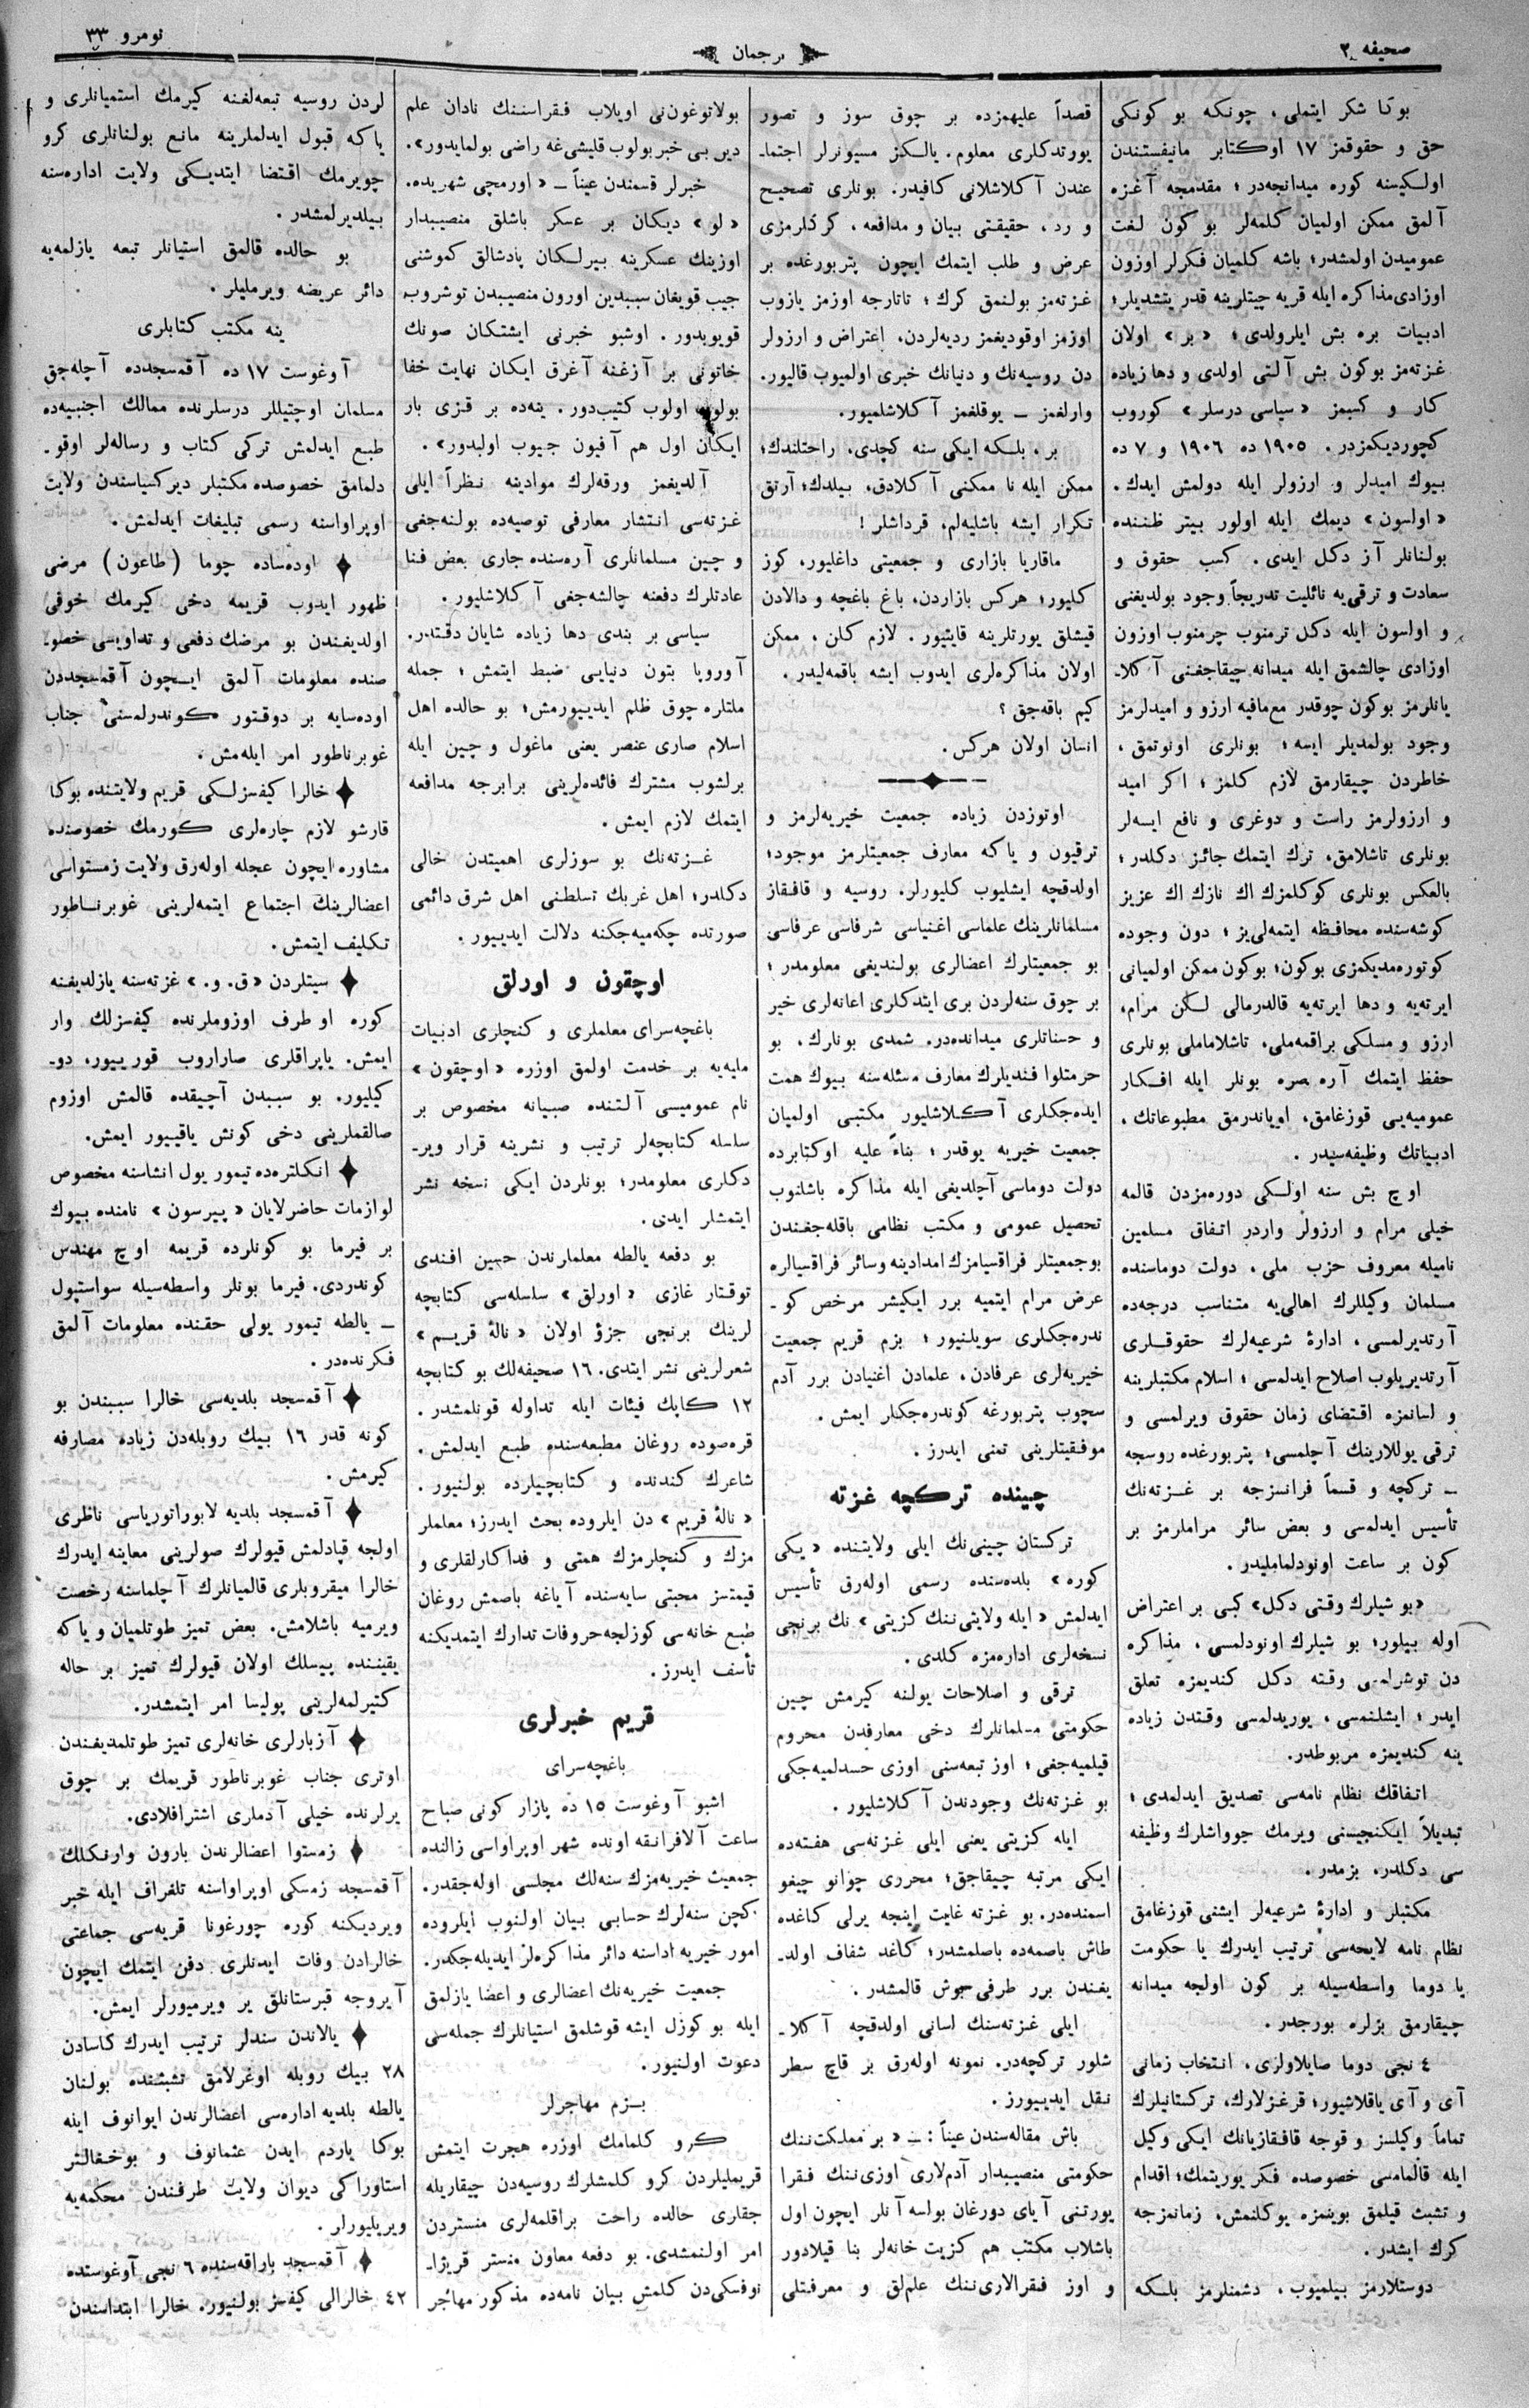 صحیفه ٢
ترجمان
نومرو ٣٣
بوڭا شکر ایتملی، چونکه بو کونکی
حق و حقوقمز ١٧ اوکتابر مانیفستندن
اولکیسنه کوره میدانجه‌در؛ مقدمجه آغزه
آلمق ممکن اولمیان کلمه‌لر بو کون لغت
عمومیدن اولمشدر؛ باشه کلمیان فکرلر اوزون
اوزادی مذاکره ایله قریه جیتلرینه قدر یتشدیلر؛
ادبیات بره بش ایلرولدی؛ «بر» اولان
غزته‌مز بوکون بش آلتی اولدی و دها زیاده
کار و کسبمز «سیاسی درسلر» کوروب
کچوردیکمزدر. ١٩٠٥ ده ١٩٠٦ و ٧ ده
بیوك امیدلر و ارزولر ایله دولمش ایدك.
«اولسون» دیمك ایله اولور بیتر ظننده
بولنانلر آز دکل ایدی. کسب حقوق و
سعادت و ترقی‌یه نائلیت تدریجاً وجود بولدیغنی
و اولسون ایله دکل ترمنوب چرمنوب اوزون
اوزادی چالشمق ایله میدانه چیقاجغنی آکلا-
یانلرمز بوکون چوقدر مع‌مافیه ارزو و امیدلرمز
وجود بولمدیلر ایسه؛ بونلری اونوتمق،
خاطردن چیقارمق لازم کلمز؛ اکر امید
و ارزولرمز راست و دوغری و نافع ایسه‌لر
بونلری تاشلامق، ترك ایتمك جائز دکلدر؛
بالعکس بونلری کوکلمزك اك نازك اك عزیز
کوشه‌سنده محافظه ایتمه‌لی‌یز؛ دون وجوده
کوتوره‌مدیکمزی بوکون؛ بوکون ممکن اولمیانی
ایرته‌یه و دها ایرته‌یه قالدرمالی لکن مرام،
ارزو و مسلکی براقمه‌ملی، تاشلاماملی بونلری
حفظ ایتمك آره صره بونلر ایله افکار
عمومیه‌یی قوزغامق، اویاندرمق مطبوعاتك،
ادبیاتك وظیفه‌سیدر.
اوچ بش سنه اولکی دوره‌مزدن قالمه
خیلی مرام و ارزولر واردر اتفاق مسلمین
نامیله معروف حزب ملی، دولت دوماسنده
مسلمان وکیللرك اهالی‌یه متناسب درجه‌ده
آرتدیرلمسی، ادارهٔ شرعیه‌لرك حقوقلری
آرتدیریلوب اصلاح ایدلمسی؛ اسلام مکتبلرینه
و لسانمزه اقتضای زمان حقوق ویرلمسی و
ترقی یوللارینك آچلمسی؛ پتربورغده روسجه
– ترکچه و قسماً فرانسزجه بر غزته‌نك
تأسیس ایدلمسی و بعض سائر مراملرمز بر
کون بر ساعت اونودلمامليدر.
«بو شیلرك وقتی دکل» کبی بر اعتراض
اوله بیلور؛ بو شیلرك اونودلمسی، مذاکره
دن توشرلمسی وقته دکل کندیمزه تعلق
ایدر؛ ایشلنمسی، یوریدلمسی وقتدن زیاده
ینه کندیمزه مربوطدر.
اتفاقك نظام نامه‌سی تصدیق ایدلمدی؛
تبدیلاً ایکنجیسنی ویرمك جوواشلرك وظیفه
سی دکلدر، بزمدر.
مکتبلر و ادارهٔ شرعیه‌لر ایشنی قوزغامق
نظام نامه لایحه‌سی ترتیب ایدرك یا حکومت
یا دوما واسطه‌سیله بر کون اولجه میدانه
چیقارمق بزلره بورجدر.
٤ نجی دوما صایلاولری، انتخاب زمانی
آی و آی یاقلاشیور؛ قرغزلارك، ترکستانیلرك
تماماً وکیلسز و قوجه قافقازیانك ایکی وکیل
ایله قالمامسی خصوصده فکر یوریتمك؛ اقدام
و تشبث قیلمق بوینمزه یوکلنمش، زمانمزجه
کرك ایشدر.
دوستلارمز بیلمیوب، دشمنلرمز بلکه
قصداً علیهمزده بر چوق سوز و تصور
یورتدکلری معلوم. یالکز مسیونرلر اجتما-
عندن آکلاشلانی کافیدر. بونلری تصحیح
و رد، حقیقتی بیان و مدافعه، کرکلرمزی
عرض و طلب ایتمك ایچون پتربورغده بر
غزته‌مز بولنمق کرك؛ تاتارجه اوزمز یازوب
اوزمز اوقودیغمز ردیه‌لردن، اعتراض و ارزولر
دن روسیه‌نك و دنیانك خبری اولمیوب قالیور.
وارلغمز – یوقلغمز آکلاشلمیور.
بر، بلکه ایکی سنه کچدی، راحتلندك؛
ممکن ایله نا ممکنی آکلادق، بیلدك؛ آرتق
تکرار ایشه باشلیه‌لم، قرداشلر!
ماقاریا بازاری و جمعیتی داغلیور، کوز
کلیور؛ هرکس بازاردن، باغ باغچه و دالادن
قیشلق یورتلرینه قایتیور. لازم کلن، ممکن
اولان مذاکره‌لری ایدوب ایشه باقمه‌لیدر.
کیم باقه‌جق؟
انسان اولان هرکس.
اوتوزدن زیاده جمعیت خیریه‌لرمز و
ترقیون و یاکه معارف جمعیتلرمز موجود؛
اولدقچه ایشلیوب کلیورلر. روسیه و قافقاز
مسلمانلرینك علماسی اغنیاسی شرفاسی عرفاسی
بو جمعیتلرك اعضالری بولندیغی معلومدر؛
بر چوق سنه‌لردن بری ایتدکلری اعانه‌لری خیر
و حسناتلری میدانده‌در. شمدی بونارك، بو
حرمتلوا فندیلرك معارف مسئله‌سنه بیوك همت
ایده‌جکلری آکلاشلیور مکتبی اولمیان
جمعیت خیریه یوقدر؛ بناءً علیه اوکتابرده
دولت دوماسی آچلدیغی ایله مذاکره باشلنوب
تحصیل عمومی و مکتب نظامی باقله‌جغندن
بوجمعیتلر فراقسیامزك امدادینه وسائر فراقسیالره
عرض مرام ایتمیه برر ایکیشر مرخص کو-
ندره‌جکلری سویلنیور؛ بزم قریم جمعیت
خیریه‌لری عرفادن، علمادن اغنیادن برر آدم
سچوب پتربورغه کوندره‌جکلر ایمش.
موفقیتلرینی تمنی ایدرز.
چینده ترکچه غزته
ترکستان چینی‌نك ایلی ولایتنده «یکی
کوره» بلده‌سنده رسمی اوله‌رق تأسیس
ایدلمش «ایله ولایتی‌ننك کزیتی» نك برنجی
نسخه‌لری اداره‌مزه کلدی.
ترقی و اصلاحات یولنه کیرمش چین
حکومتی مسلمانلرك دخی معارفدن محروم
قیلمیه‌جغی؛ اوز تبعه‌سنی اوزی حسدلمیه‌جکی
بو غزته‌نك وجودندن آکلاشلیور.
ایله کزیتی یعنی ایلی غزته‌سی هفته‌ده
ایکی مرتبه چیقاجق؛ محرری چوانو چیغو
اسمنده‌در. بو غزته غایت اینچه یرلی کاغده
طاش باصمه‌ده باصلمشدر؛ کاغد شفاف اولد-
یغندن برر طرفی بوش قالمشدر.
ایلی غزته‌سنك لسانی اولدقچه آکلا-
شلور ترکچه‌در. نمونه اوله‌رق بر قاچ سطر
نقل ایدییورز.
باش مقاله‌سندن عیناً: – «بر مملکت‌ننك
حکومتی منصیبدار آدم‌لاری اوزی‌ننك فقرا
یورتنی آیای دورغان بولسه آنلر ایچون اول
باشلاب مکتب هم کزیت خانه‌لر بنا قیلادور
و اوز فقرالاری‌ننك علم‌لق و معرفتلی
بولاتوغون‌نی اویلاب فقراسننك نادان علم
دین بی خبر بولوب قلیشی‌غه راضی بولمایدور».
خبرلر قسمندن عیناً – «اورمچی شهریده.
«لو» دیکان بر عسکر باشلق منصیبدار
اوزینك عسکرینه بیرلکان پادشالق کموشنی
جیب قویغان سببدین اورون منصیبدن توشروب
قویوبدور. اوشبو خبرنی ایشتکان صونك
خاتونی بر آزغنه آغرق ایکان نهایت خفا
بولوب اولوب کتیب‌دور. ینه‌ده بر قزی بار
ایکان اول هم آفیون جیوب اولبدور».
آلدیغمز ورقه‌لرك موادینه نظراً ایلی
غزته‌سی انتشار معارفی توصیه‌ده بولنه‌جغی
و چین مسلمانلری آره‌سنده جاری بعض فنا
عادتلرك دفعنه چالشه‌جغی آکلاشلیور.
سیاسی بر بندی دها زیاده شایان دقتدر.
آوروپا بتون دنیایی ضبط ایتمش؛ جمله
ملتلره چوق ظلم ایدییورمش؛ بو حالده اهل
اسلام صاری عنصر یعنی ماغول و چین ایله
برلشوب مشترك فائده‌لرینی برابرجه مدافعه
ایتمك لازم ایمش.
غزته‌نك بو سوزلری اهمیتدن خالی
دکلدر؛ اهل غربك تسلطنی اهل شرق دائمی
صورتده چکه‌میه‌جکنه دلالت ایدییور.
اوچقون و اورلق
باغچه‌سرای معلملری و کنجلری ادبیات
ملیه‌یه بر خدمت اولمق اوزره «اوچقون»
نام عمومیسی آلتنده صبیانه مخصوص بر
سلسله کتابچه‌لر ترتیب و نشرینه قرار ویر-
دکلری معلومدر؛ بونلردن ایکی نسخه نشر
ایتمشلر ایدی.
بو دفعه یالطه معلملرندن حسین افندی
توقتار غازی «اورلق» سلسله‌سی کتابچه
لرینك برنجی جزؤ اولان «نالهٔ قریم»
شعرلرینی نشر ایتدی. ١٦ صحیفه‌لك بو کتابچه
١٢ کاپك فیئات ایله تداوله قونلمشدر.
قره‌صوده روغان مطبعه‌سنده طبع ایدلمش.
شاعرك کندنده و کتابچیلرده بولنیور.
«نالهٔ قریم» دن ایلروده بحث ایدرز؛ معلملر
مزك و کنجلرمزك همتی و فداکارلقلری و
قیمتسز محبتی سایه‌سنده آیاغه باصمش روغان
طبع خانه‌سی کوزلجه حروفات تدارك ایتمدیکنه
تأسف ایدرز.
قریم خبرلری
باغچه‌سرای
اشبو آوغوست ١٥ ده یازار کونی صباح
ساعت آلافرانقه اونده شهر اوپراواسی زالنده
جمعیت خیریه‌مزك سنه‌لك مجلسی اوله‌جقدر.
کچن سنه‌لرك حسابی بیان اولنوب ایلروده
امور خیریه اداسنه دائر مذاکره‌لر ایدیله‌جکدر.
جمعیت خیریه‌نك اعضالری و اعضا یازلمق
ایله بو کوزل ایشه قوشلمق استیانلرك جمله‌سی
دعوت اولنیور.
بزم مهاجرلر
کرو کلمامك اوزره هجرت ایتمش
قریملیلردن کرو کلمشلرك روسیه‌دن چیقاریله
جقاری حالده راحت براقلمه‌لری منستردن
امر اولنمشدی. بو دفعه معاون منستر قریژا-
نوفسکی‌دن کلمش بیان نامه‌ده مذکور مهاجر
لردن روسیه تبعه‌لغنه کیرمك استمیانلری و
یاکه قبول ایدلملرینه مانع بولنانلری کرو
چویرمك اقتضا ایتدیکی ولایت اداره‌سنه
بیلدیرلمشدر.
بو حالده قالمق استیانلر تبعه یازلمه‌یه
دائر عریضه ویرملیلر.
ینه مکتب کتابلری
آوغوست ١٧ ده آقمسجدده آچله‌جق
مسلمان اوچتیللر درسلرنده ممالك اجنبیه‌ده
طبع ایدلمش ترکی کتاب و رساله‌لر اوقو-
دلمامق خصوصده مکتبلر دیرکسیاسندن ولایت
اوپراواسنه رسمی تبلیغات ایدلمش.
اوده‌ساده چوما (طاعون) مرضی
ظهور ایدوب قریمه دخی کیرمك خوفی
اولدیغندن بو مرضك دفعی و تداویسی خصو-
صنده معلومات آلمق ایچون آقمسجددن
اوده‌سایه بر دوقتور کوندرلمسنی جناب
غوبرناطور امر ایله‌مش.
خالرا کیفسزلکی قریم ولایتنده بوکا
قارشو لازم چاره‌لری کورمك خصوصنده
مشاوره ایچون عجله اوله‌رق ولایت زمستواسی
اعضالرینك اجتماع ایتمه‌لرینی غوبرناطور
تکلیف ایتمش.
سیتلردن «ق. و.» غزته‌سنه یازلدیغنه
کوره او طرف اوزوملرنده کیفسزلك وار
ایمش. یاپراقلری صاراروب قورییور، دو-
کیلیور. بو سببدن آچیقده قالمش اوزوم
صالقملرینی دخی کونش یاقییور ایمش.
انکلتره‌ده تیمور یول انشاسنه مخصوص
لوازمات حاضرلایان «پیرسون» نامنده بیوك
بر فیرما بو کونلرده قریمه اوچ مهندس
کوندردی. فیرما بونلر واسطه‌سیله سواستپول
– یالطه تیمور یولی حقنده معلومات آلمق
فکرنده‌در.
آقمسجد بلدیه‌سی خالرا سببندن بو
کونه قدر ١٦ بیك روبله‌دن زیاده مصارفه
کیرمش.
آقمسجد بلدیه لابوراتوریاسی ناظری
اولجه قپادلمش قیولرك صولرینی معاینه ایدرك
خالرا میقروبلری قالمیانلرك آچلماسنه رخصت
ویرمیه باشلامش. بعض تمیز طوتلمیان و یاکه
یقیننده پیسلك اولان قیولرك تمیز بر حاله
کتیرلمه‌لرینی پولیسا امر ایتمشدر.
آزبارلری خانه‌لری تمیز طوتلمدیغندن
اوتری جناب غوبرناطور قریمك بر چوق
یرلرنده خیلی آدملری اشترافلادی.
زمستوا اعضالرندن بارون وارنکلك
آقمسجد زمسکی اوپراواسنه تلغراف ایله خبر
ویردیکنه کوره چورغونا قریه‌سی جماعتی
خالرادن وفات ایدنلری دفن ایتمك ایچون
آیروجه قبرستانلق یر ویرمیورلر ایمش.
یالاندن سندلر ترتیب ایدرك کاسادن
٢٨ بیك روبله اوغرلامق تشبثنده بولنان
یالطه بلدیه اداره‌سی اعضالرندن ایوانوف اینه
بوکا یاردم ایدن عثمانوف و بوخغالتر
استاوراکی دیوان ولایت طرفندن محکمه‌یه
ویریلیورلر.
آقمسجد باراقه‌سنده ٦ نجی آوغوستده
٤٢ خالرالی کیفسز بولنیور. خالرا ابتداسندن